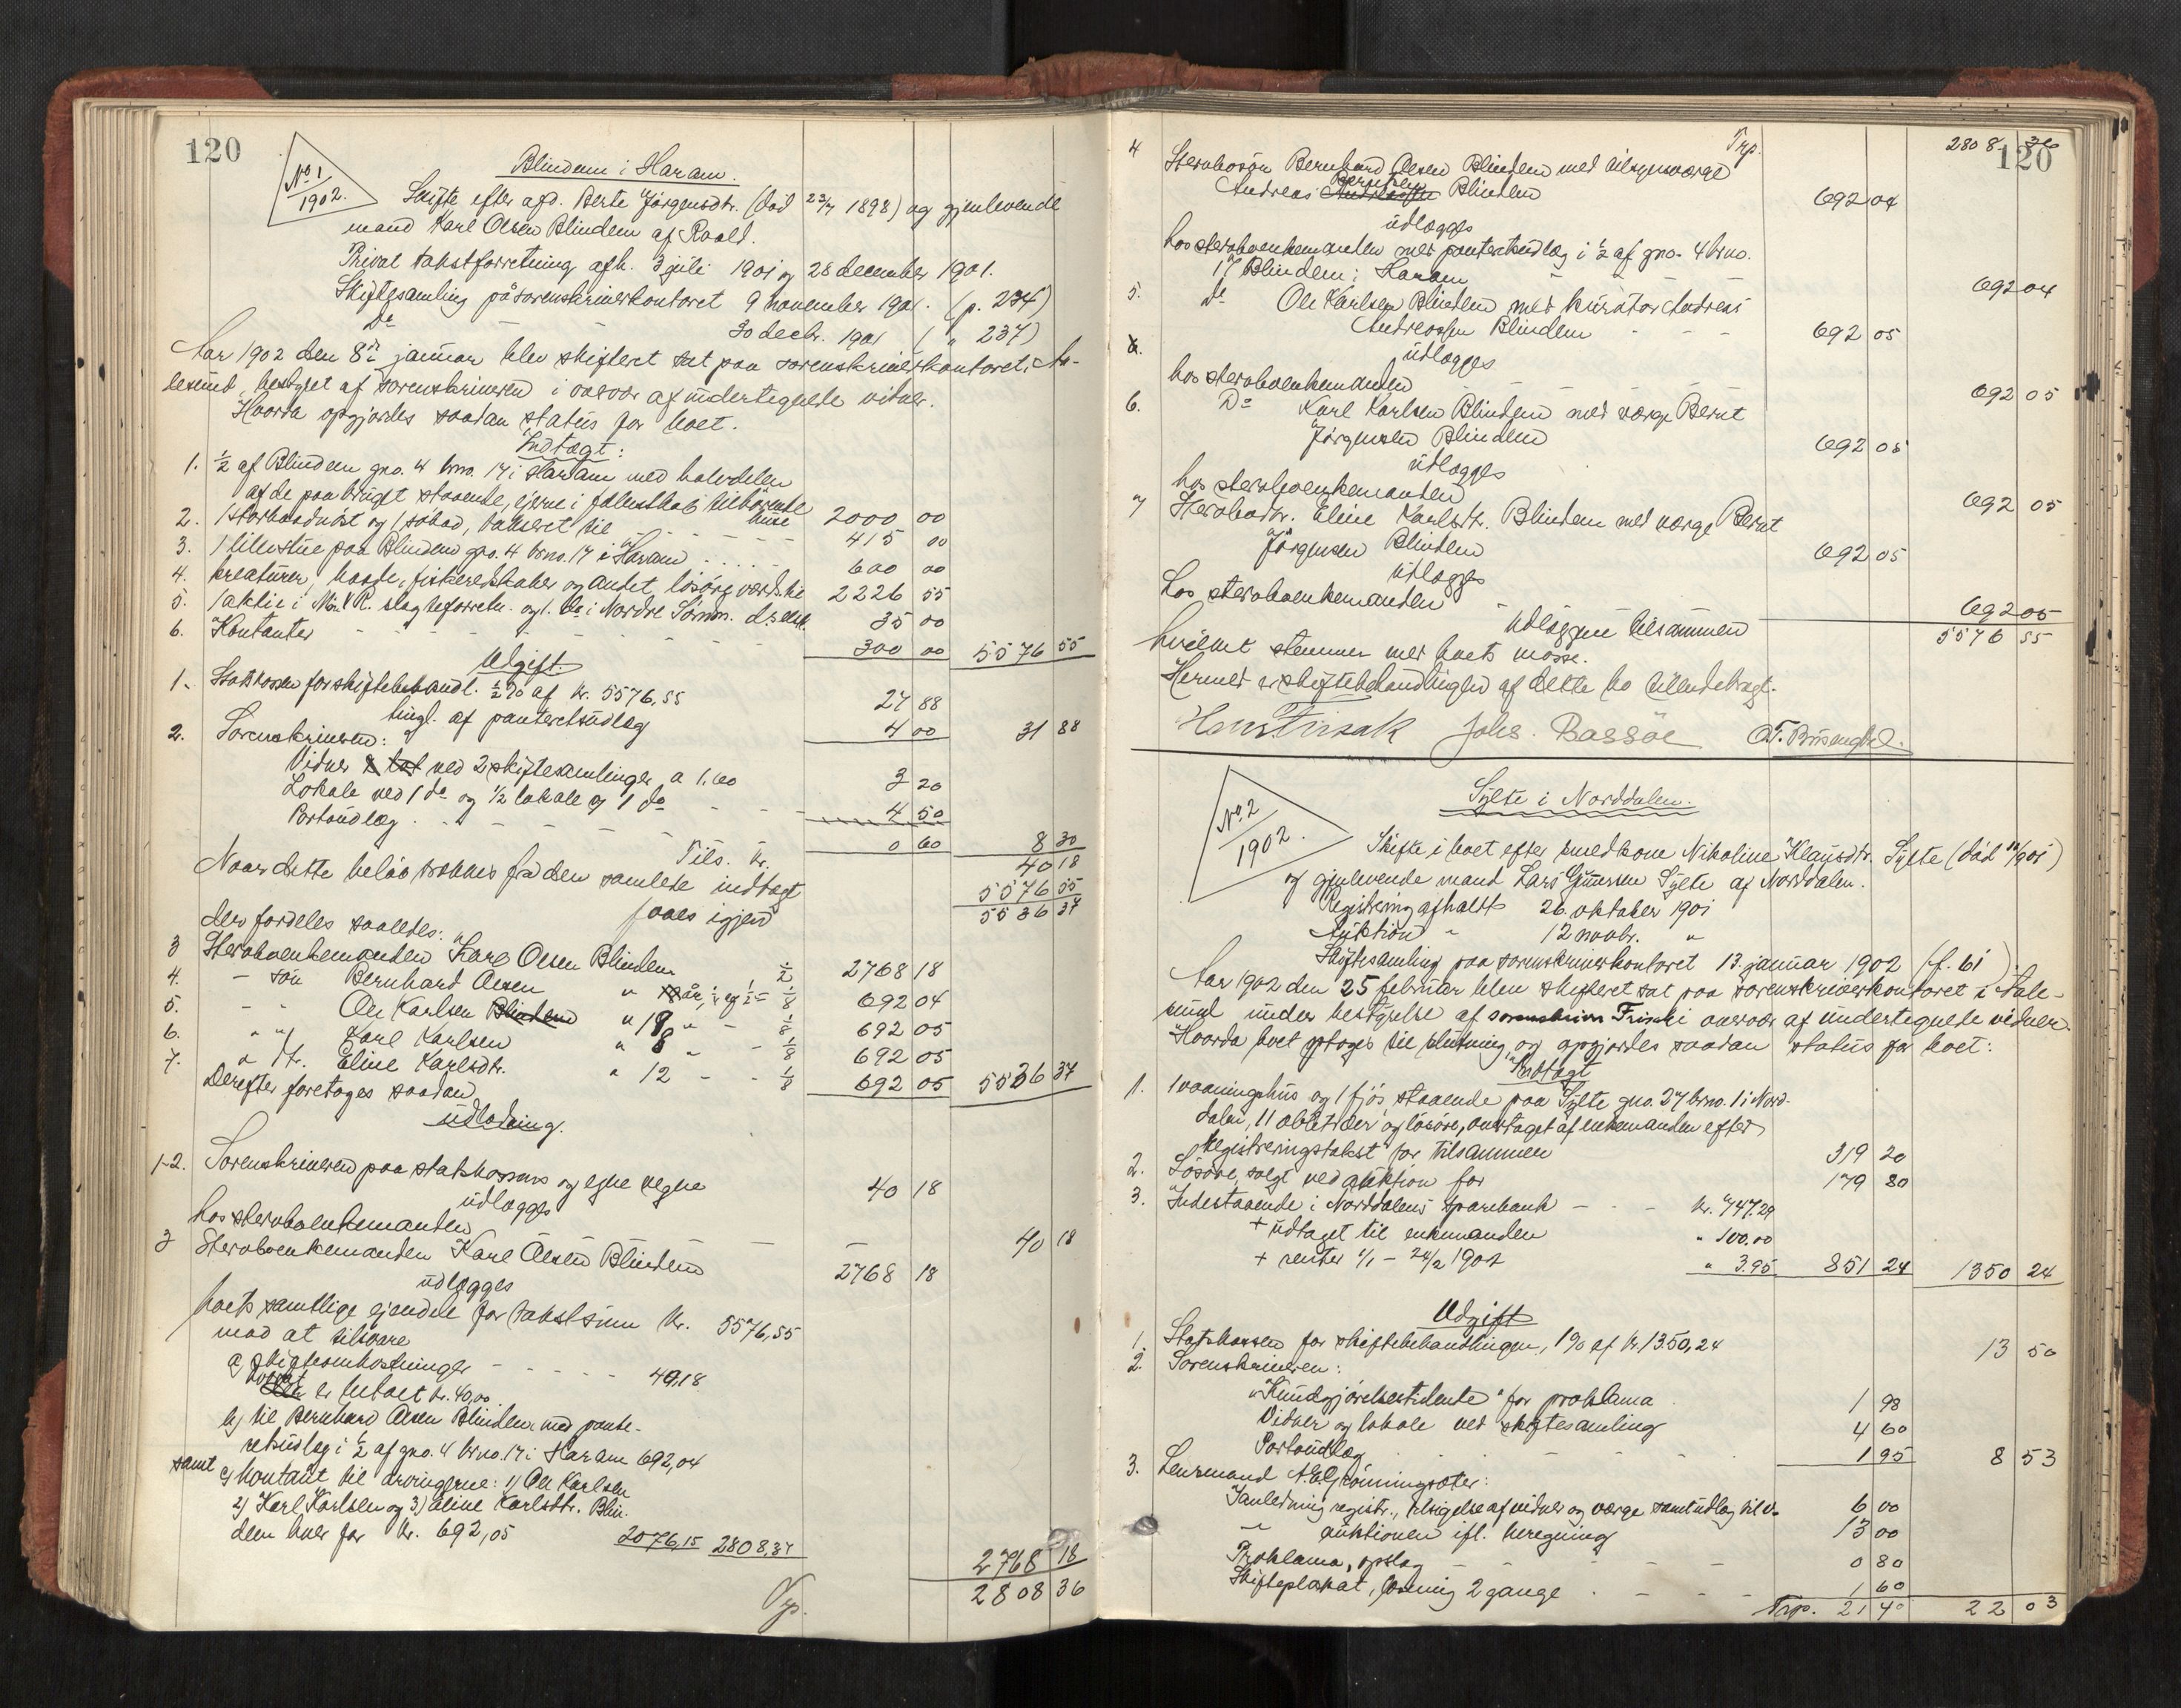 120
No 1
1902.
Blindem i Haram.
Skifte efter afd. Berte Jörgensdtr. (död 23/7 1898) og gjenlevende
mand Karl Olsen Blindem af Roald.
Privat takstforretning afh. 3 juli 1901 og 28 december 1901.
Skiftesamling på sorenskriverkontoret 9 november 1901. (p. 234)
Do 30 decbr. 1901 ( " 237)
Aar 1902 den 8de januar blev skifteret sat paa sorenskriverkontoret i Aa-
lesund, bestyret af sorenskriveren i overvær af undertegnede vidner.
Hvorda opgjordes saadan status for boet.
Indtægt:
1. 1/2 af Blindem gno. 4 brno. 17 i Haram med halvdelen
af de paa bruget staaende, ejerne i fællesskab tilhörende
huse 2000 00
2. 1 storbaadnöst og 1 söbod, takseret til 415 00
3. 1 lillestue paa Blindem gno. 4 brno. 17 i Haram 600 00
4. kreaturer, baade, fiskeredskaber og andet lösöre værds. til 2226 55
5. 1 aktie i M. & R. slagteforretn. og 1 do i Nordre Söndm. d.s.selsk. 35 00
6. Kontanter 300 00 5576 55
Udgift.
1. Statskassen for skiftebehandl. 1/2 % af kr. 5576,55 27 88
tingl. af panteretsudlæg 4 00 31 88
2. Sorenskriveren:
Vidner ved 2 skiftesamlinger a 1.60 3 20
Lokale ved 1 do og 1/2 lokale af 1 do 4 50
Portoudlæg 0 60 8 30
Tils. kr. 40 18
Naar dette belöb trækkes fra den samlede indtægt 5576 55
faaes igjen 5536 37
der fordeles saaledes:
3 Stervboenkemanden Karl Olsen Blindem 1/2 2768 18
4. - sön Bernhard Olsen " 18 år, 1/4 af 1/2 = 1/8 692 04
5. - " Ole Karlsen Blindem " 19 " - 1/8 692 05
6. " " Karl Karlsen " 8 " - 1/8 692 05
7. " dtr. Eline Karlsdtr. " 12 - - 1/8 692 05 5536 37
Derefter foretages saadan
udlodning.
1-2. Sorenskriveren paa statskassens og egne vegne 40 18
udlægges
hos stervboenkemanden 40 18
3 Stervboenkemanden Karl Olsen Blindem 2768 18
udlægges
boets samtlige ejendele for takstsum kr. 5576,55
mod at tilsvare
a) skifteomkostninger 40,18
hvoraf er betalt kr. 40,00
b) til Bernhard Olsen Blindem med pante-
retsudlæg i 1/2 af gno. 4 brno. 17 i Haram 692,04
samt c) kontant til arvingerne: 1) Ole Karlsen
2) Karl Karlsen og 3) Eline Karlsdtr. Blin-
dem hver for kr. 692,05 2076,15 2808,37
2768 18
Trp. 2808 36
120
Trp. 2808 36
4 Stervbosön Bernhard Olsen Blindem med tilsynsværge
Andreas Berntsen Blindem 692 04
udlægges
hos stervboenkemanden med panteretsudlæg i 1/2 af gno. 4 brno.
17 Blindem i Haram 692 04
5. do Ole Karlsen Blindem med kurator Andreas
Andreassen Blindem 692 05
udlægges
hos stervboenkemanden 692 05
6. Do Karl Karlsen Blindem med værge Bernt
Jörgensen Blindem 692 05
udlægges
hos stervboenkemanden 692 05
7 Stervbodtr. Eline Karlsdtr. Blindem med værge Bernt
Jörgensen Blindem 692 05
udlægges
hos stervboenkemanden 692 05
Udlæggene tilsammen 5576 55
hvilket stemmer med boets masse.
Hermed er skiftebehandlingen af dette bo tilendebragt.
Johs. Bassöe
No 2
1902.
Sylte i Norddalen.
Skifte i boet efter kone Nikoline Klausdtr. Sylte
og gjenlevende mand Lars Gunnersen Sylte af Norddalen.
Registrering afholdt 26. oktober 1901
Auktion " 12 novbr. "
Skiftesamling paa sorenskriverkontoret 13. januar 1902 (f. 61)
Aar 1902 den 25 februar blev skifteret sat paa sorenskriverkontoret i Aale-
sund under bestyrelse af sorenskriver Frisak i overvær af undertegnede vidner.
Hvorda boet optoges til slutning og opgjordes saadan status for boet:
Indtægt
1. 1 vaaningshus og 1 fjös, staaende paa Sylte gno. 27 brno. 1 i Nord-
dalen, 11 abletræer og lösöre, overtaget af enkemanden efter
registreringstakst for tilsammen 319 20
2. Lösöre, solgt ved auktion for 179 80
3. Indestaaende i Norddalens sparebank kr. 747.29
+ udtaget til enkemanden " 100.00
+ renter 1/1 - 24/2 1902 " 3.95 851 24 1350 24
Udgift
1. Statskassen for skiftebehandlingen, 1% af kr. 1350,24 13 50
2. Sorenskriveren:
"Kundgjörelsestidende" for proklama 1 98
Vidner og lokale ved skiftesamling 4 60
Portoudlæg 1 95 8 53
3. Lensmand A. E. Grönningsæter:
I anledning registr., tilsigelse af vidner og værge samt udlæg til v. 6 00
-"- auktionen ifl. beregning 13 00
Proklama, opslag 0 80
Skifteplakat, læsning 2 gange 1 60
Trp. 21 40 22 03